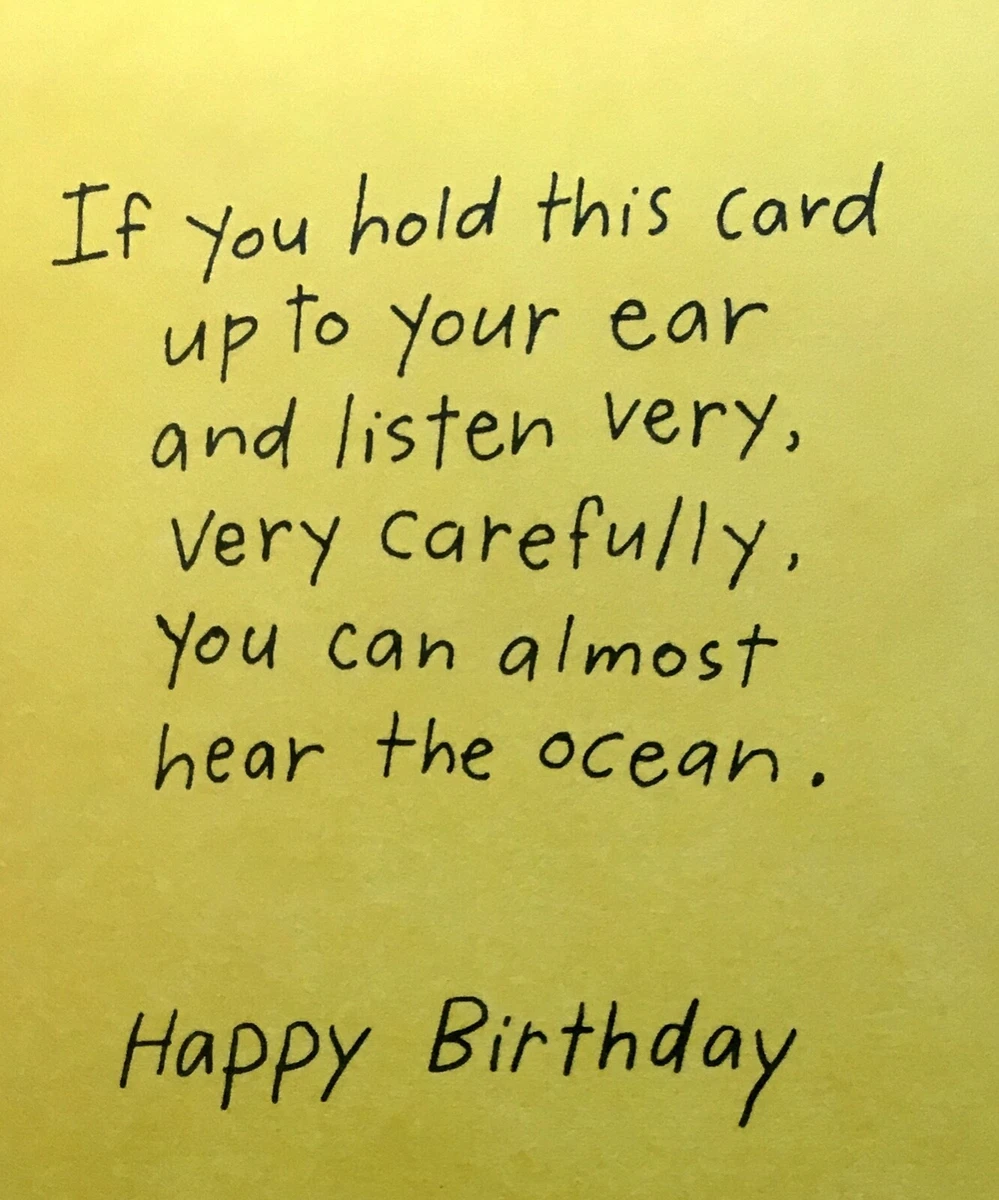 If you hold this card
up to your ear
and listen very,
very carefully,
you can almost
hear the ocean.
Happy Birthday